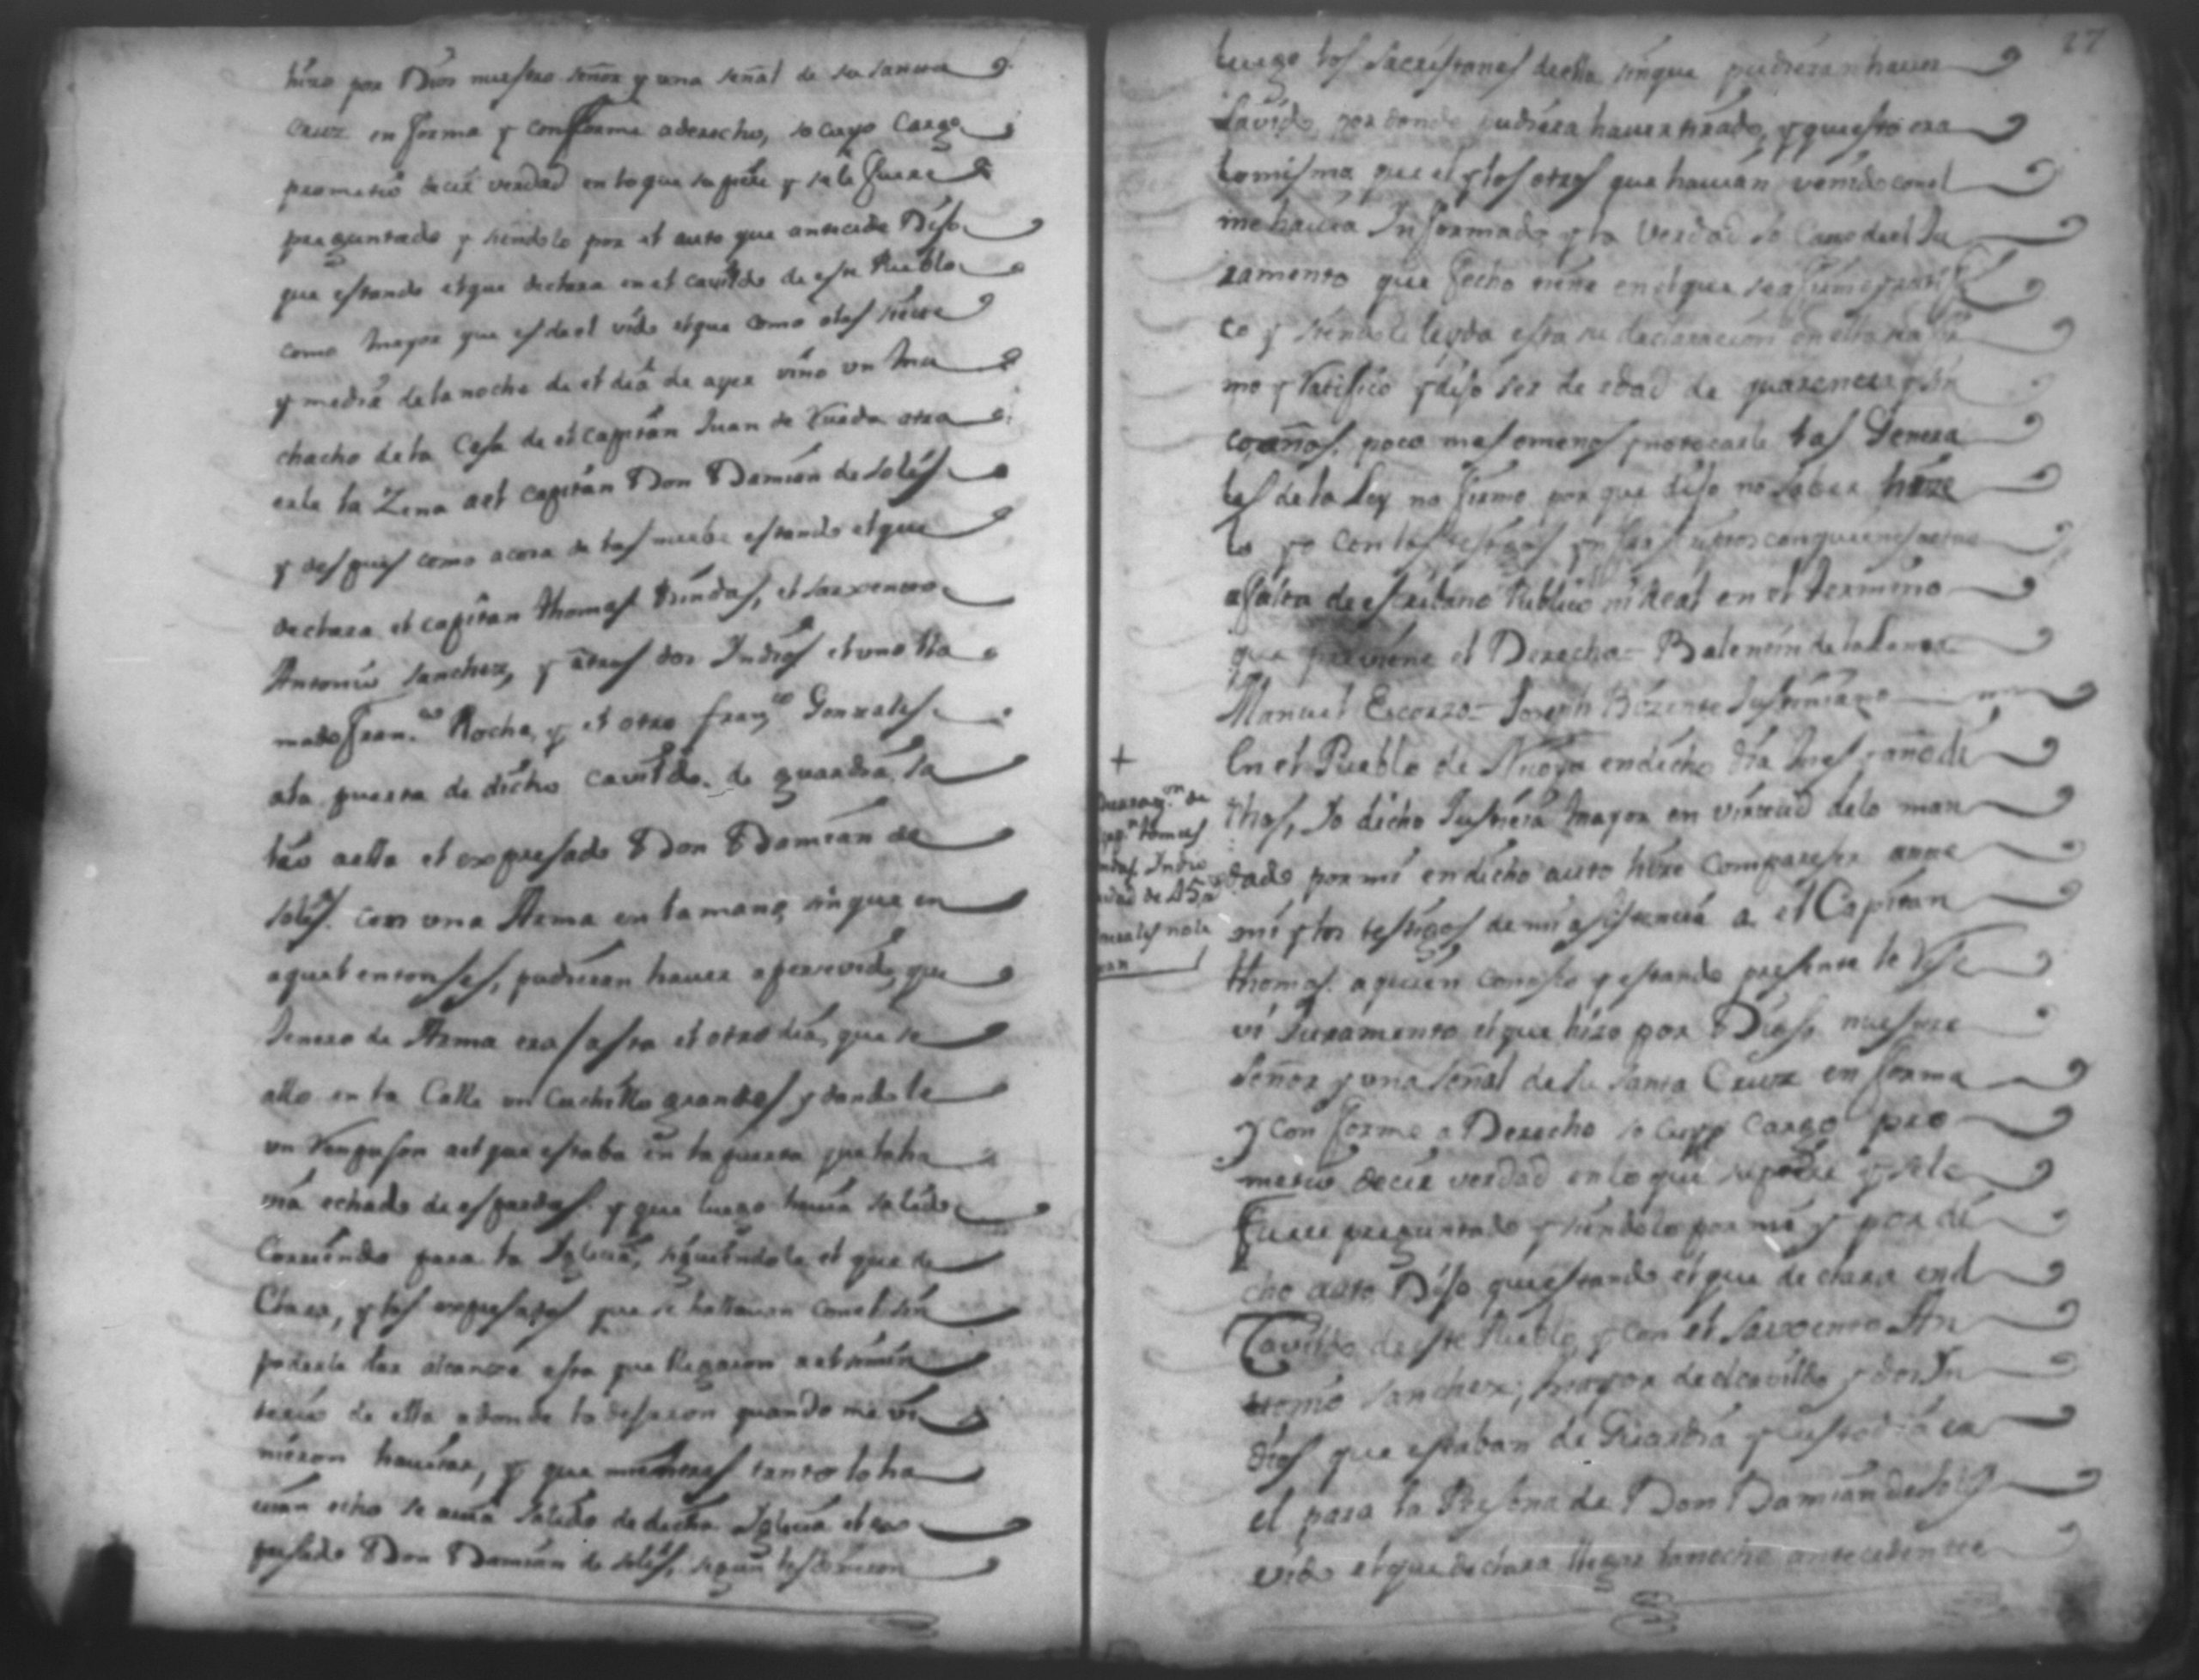 hizo por Dios nuestro señor y una señal de su santa
Cruz en forma y conforme a derecho, so cuyo Cargo
prometio decir verdad en lo que supiere y se le fuere
preguntado y siendolo por el auto que antecede Dijo
que estando el que declara en el cavildo de este Pueblo
como Mayor que es de el vido el que como a las siete
y media de la noche de el dia de ayer vino un Mu
chacho de la Casa de el Capitan Juan de Rueda a tra
erle la Zena a el Capitan Don Damian de Solis
y despues como acora de las nuebe estando el que
declara el capitan thomas, el sarxento
Antonio Sanchez, y otros dos Indios el uno lla
mado Fran.co Rocha, y el otro Fran.co Gonzales
a la puerta de dicho cavildo de guardia, sa
lio a ella el expresado Don Damian de
Solis con una Arma en la mano, sin que en
aquel entonses, pudieran haver apersevido, que
Jenero de Arma era asta el otro dia, que se
allo en la Calle un Cuchillo grande y dandole
un Rempuson a el que estaba en la puerta que lo ha
via echado de espaldas y que luego havia salido
Corriendo para la Iglecia, siguiendole el que de
Clara, y los expresados que se hallavan con el sin
poderle dar alcanze asta que llegaron a el simen
terio de ella a donde lo dejaron quando me vi
nieron havisar, y que mientras tanto lo ha
vian echo se avia salido de dicha Iglecia el ex
presado Don Damian de Solis, segun les dixeron
27
luego los Sacristanes de ella sin que pudieran haver
savido por donde pudiera haver tirado, y que esto era
lo mismo que el y los otros que havian venido con el
me havia Informado y la Verdad so Cargo de el Ju
ramento que fecho tiene en el que se afirmo y ratifi
co y siendole leyda esta su declaracion en ella se afir
mo y Ratifico y dijo ser de edad de quarenta y sin
co años poco mas o menos y no tocarle las Genera
les de la Ley no firmo por que dijo no saber hize
lo yo con los testigos con quienes actuo
a falta de escribano Publico ni Real en el termino
que previene el Derecho = Balentin de la
Manuel Escorza = Joseph Bizente Justiniano
En el Pueblo de Nicoya en dicho dia mes y año di
chos, Yo dicho Justicia Mayor en virtud de lo man
dado por mi en dicho auto hize Compareser ante
mi y los testigos de mi asistencia a el Capitan
thomas a quien conosco y estando presente le Rese
vi Juramento el que hizo por Dios nuestro
Señor y una señal de su Santa Cruz en forma
y conforme a Derecho so cuyo cargo pro
metio decir verdad en lo que supiere y se le
fuere preguntado y siendolo por mi y por di
cho auto Dijo que estando el que declara en el
Cavildo de este Pueblo, y con el Sarxento An
tonio Sanchez; mayor de el cavildo y dos In
dios que estaban de Guardia y Custodia en
el para la Persona de Don Damian de Solis
vido el que declara llegar la noche antecedente
+
thomas
Indio
edad de 45 a.s
generales no le